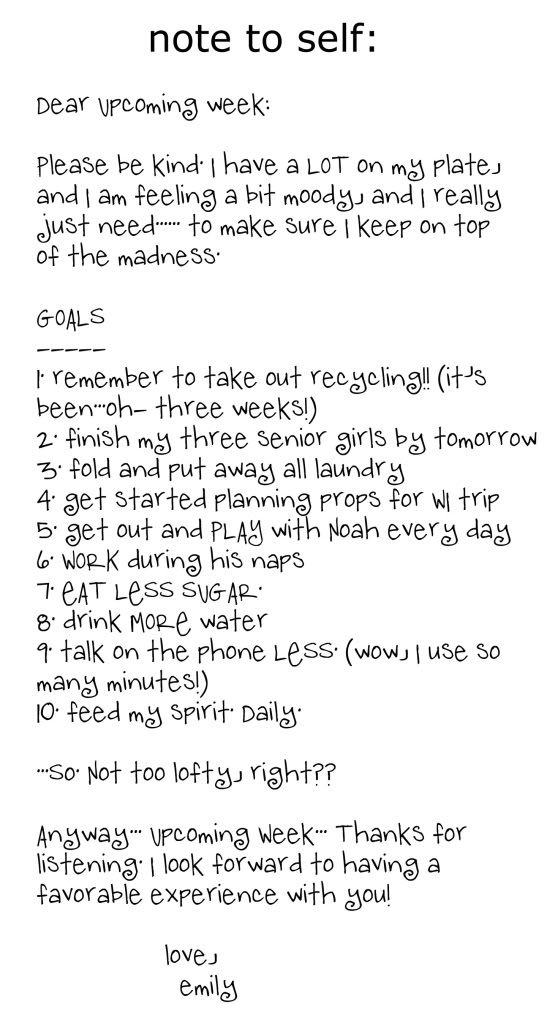 note to self:
Dear upcoming week:
Please be kind. I have a LOT on my plate,
and I am feeling a bit moody, and I really
just need...... to make sure I keep on top
of the madness.
GOALS
-----
1. remember to take out recycling!! (it's
been...oh- three weeks!)
2. finish my three senior girls by tomorrow
3. fold and put away all laundry
4. get started planning props for WI trip
5. get out and PLAY with Noah every day
6. WORK during his naps
7. EAT LESS SUGAR.
8. drink MORE water
9. talk on the phone LESS. (wow, I use so
many minutes!)
10. feed my spirit. Daily.
...So. Not too lofty, right??
Anyway... upcoming week... Thanks for
listening. I look forward to having a
favorable experience with you!
love,
emily